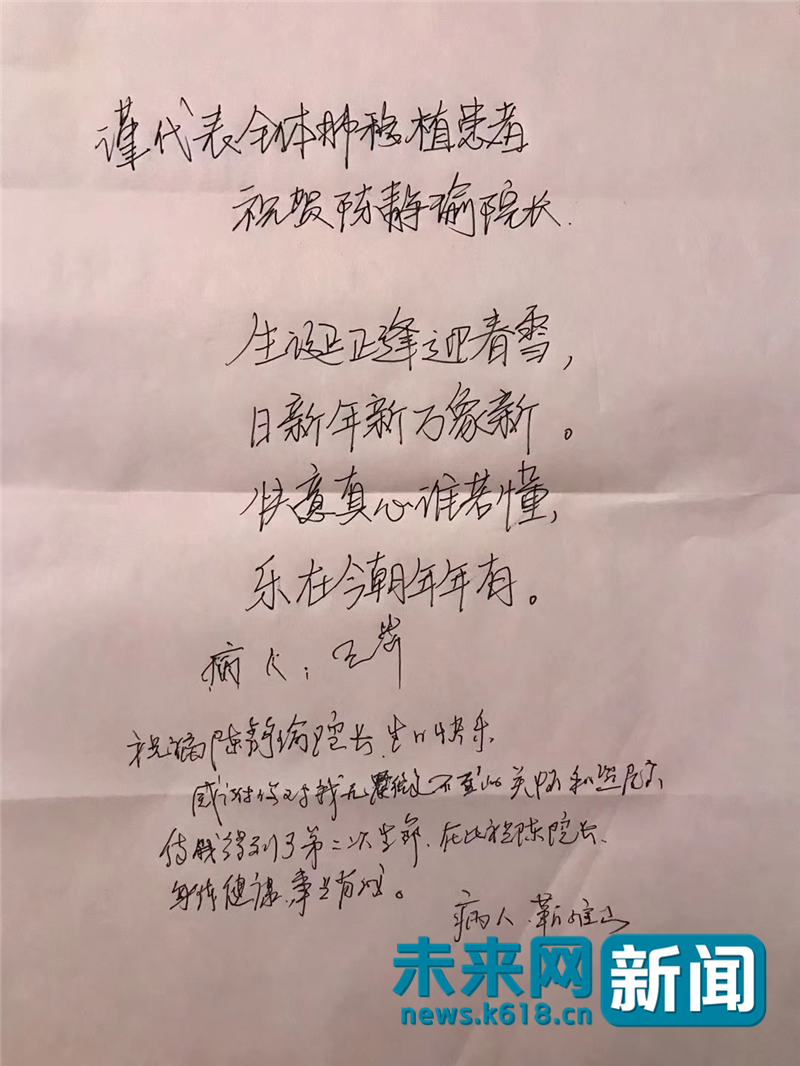 谨代表全体肺移植患者
祝贺陈静瑜院长.
生诞正逢迎春雪,
日新年新万象新。
快意真心谁若懂,
乐在今朝年年有。
病人: 王
祝福陈静瑜院长.生日快乐
感谢你对我无微不至的关怀和照顾
使我得到了第二次生命.在此祝陈院长.
身体健康.事业有成。
病人.靳
未来网 新闻
news.k618.cn